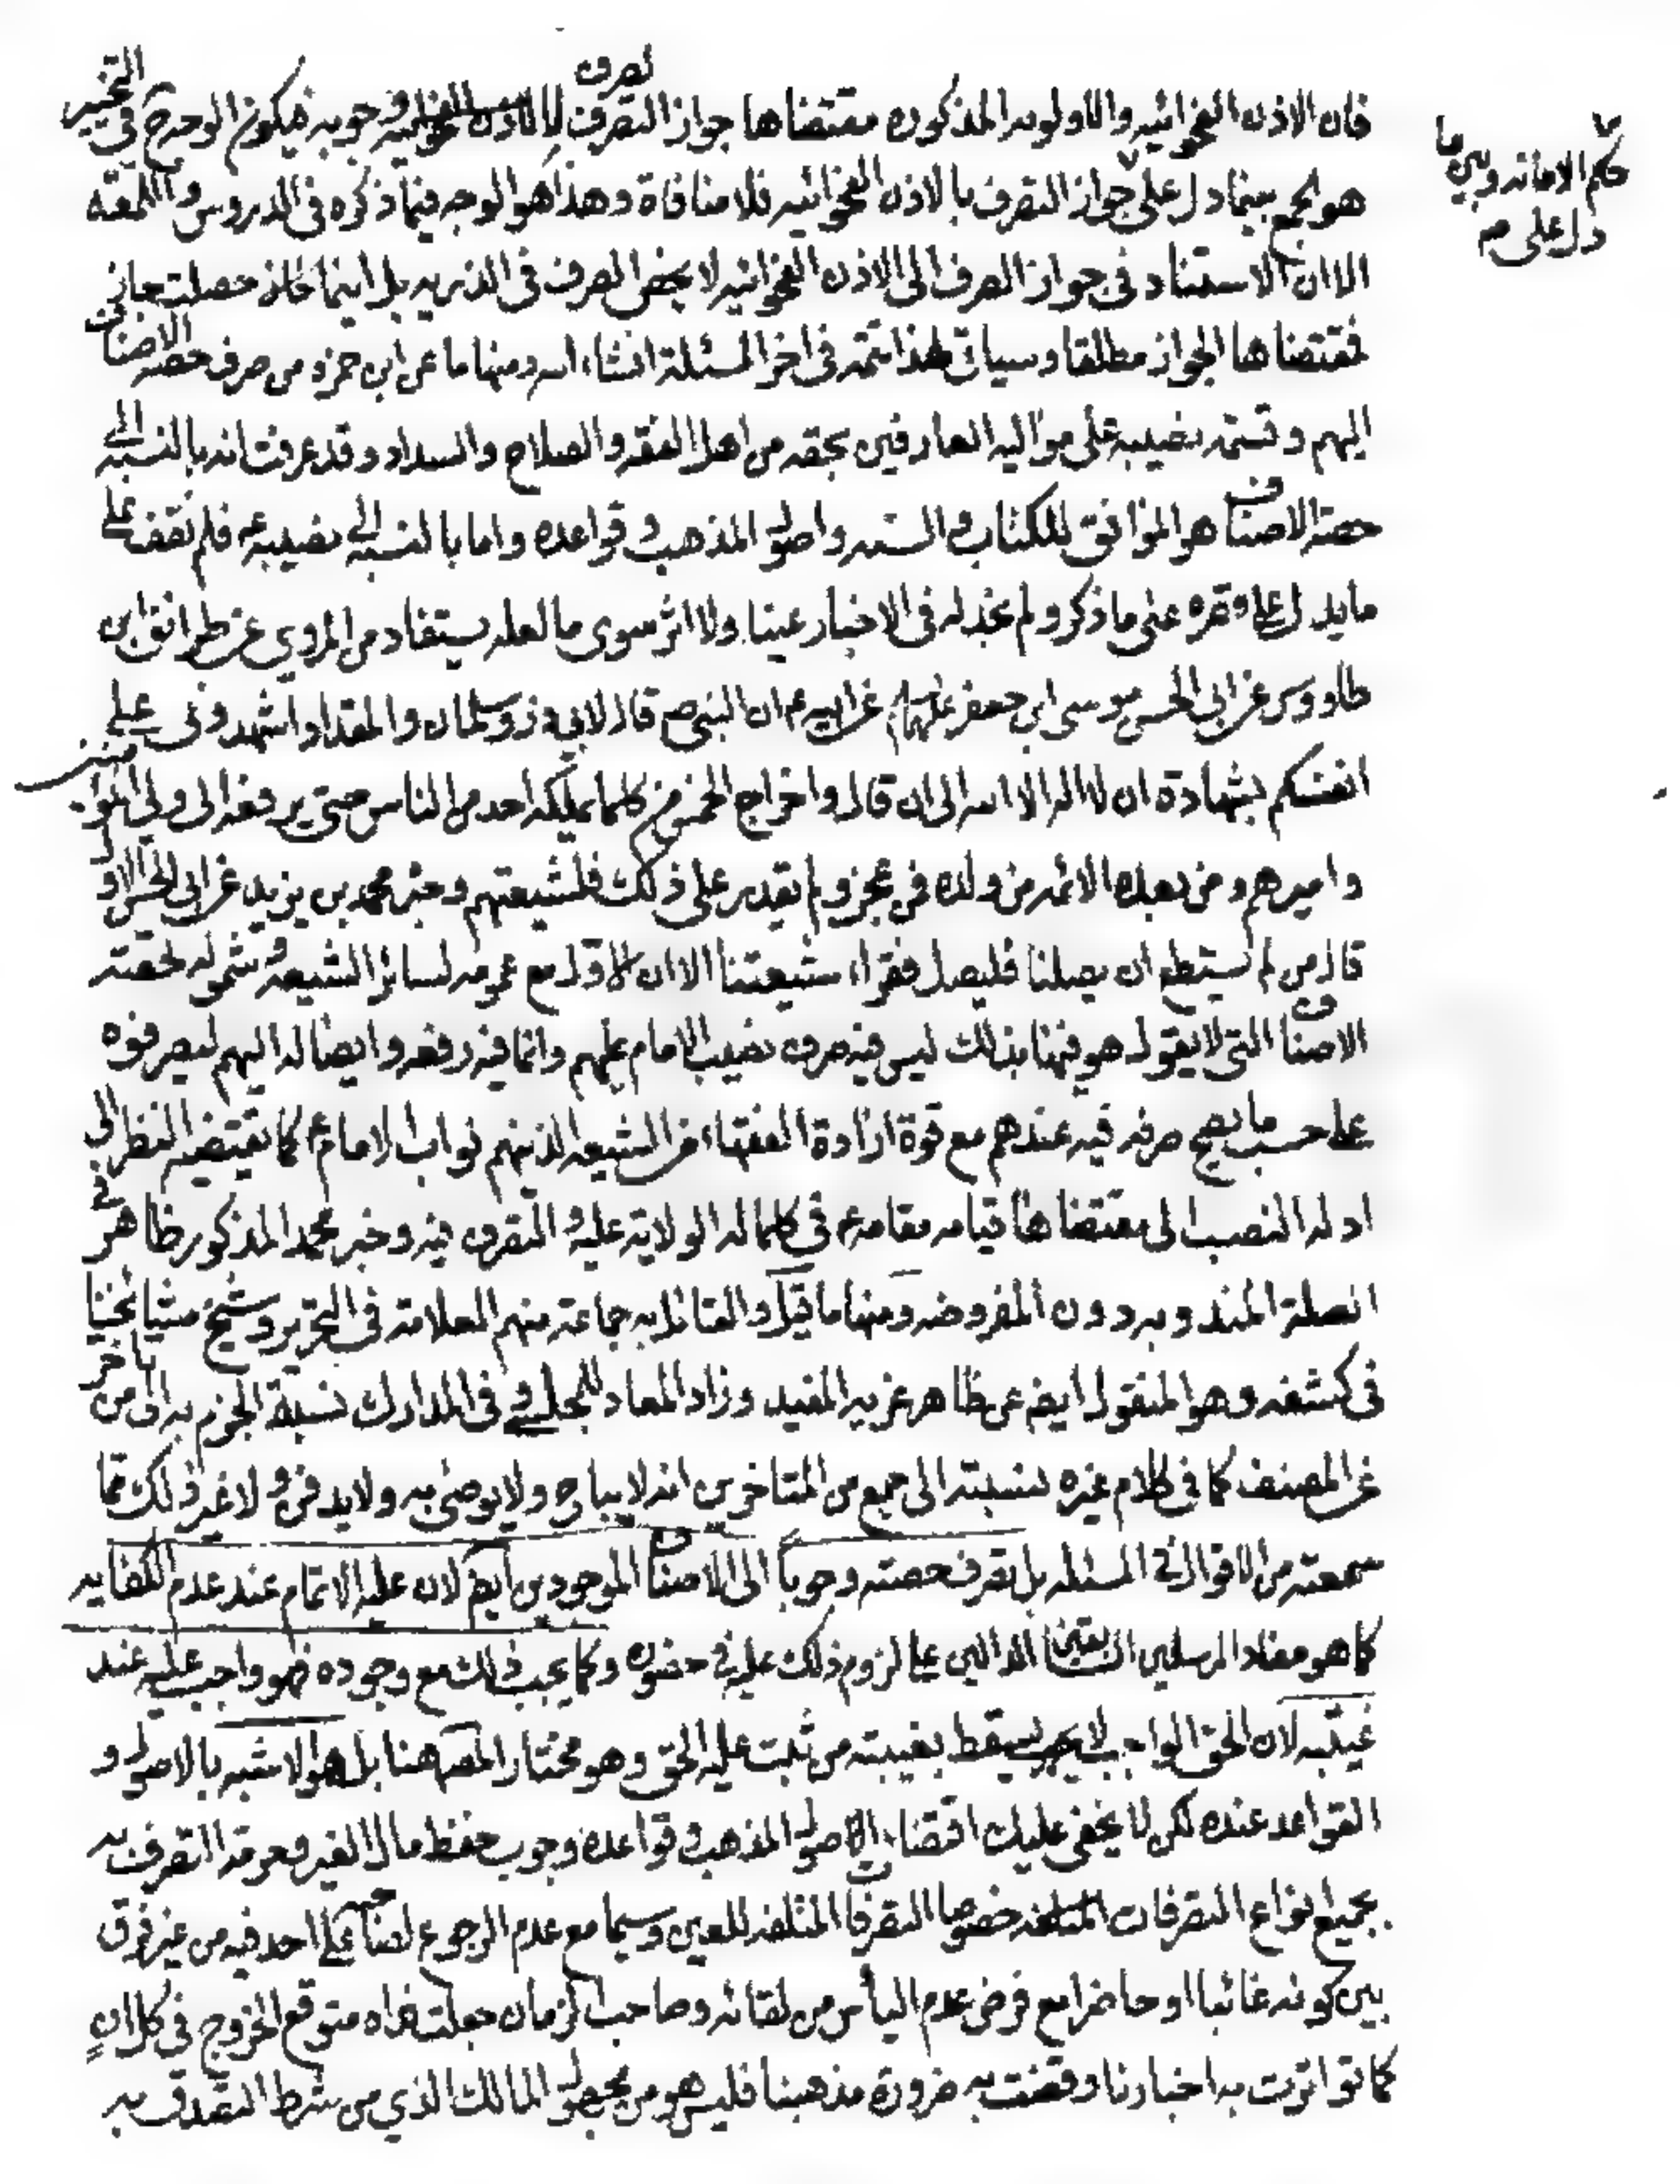 فان الاذن الفحوائيه والاولويه المذكوره مقتضاها جواز التصرف لا وجوبه فيكون الوجه ح في التخيير
هو الجمع بينما دل على جواز التصرف بالاذن الفحوائيه فلا منافاة وهذا هو الوجه فيما ذكره في الدروس و اللمعه
حكم الامانه وبين ما
دل على صم
الا ان الاستناد في جواز الصرف الى الاذن الفحوائيه لا يخص الصرف في الذريه بل اينما حصلت جاز
فمقتضاها الجواز مطلقا وسياتي لهذا تتمه في اخر المسئلة انشاء الله ومنها ما عن ابن حمزه من صرف حصه الاصناف
اليهم وقسمه نصيبه على مواليه العارفين بحقه من اهل الفقر والصلاح والسداد وقد عرفت انه بالنسبه الى
حصه الاصناف هو الموافق للكتاب والسنه واصول المذهب و قواعده واما بالنسبه الى نصيبه ع فلم نقف على
ما يدل على قصره على ما ذكر ولم نجد له في الاخبار عينا ولا اثر سوى ما لعله يستفاد من المروي عن طرائف ابن
طاووس عن ابي الحسن موسى ابن جعفر عليهما عن ابيه ع ان النبي ص قال لابي ذر وسلمان والمقداد اشهدوني على
انفسكم بشهادة ان لا اله الا الله الى ان قال واخراج الخمس من كلما يملكه احد من الناس حتى يرفعه الى ولي المؤمنين
واميرهم ومن بعده الائمه من ولده فمن عجز ولم يقدر على ذلك فلشيعتهم وخبر محمد بن يزيد عن ابي الحسن الاول
قال من لم يستطع ان يصلنا فليصل فقراء شيعتنا الا ان الاول مع عمومه لسائر الشيعه و شموله لحصته
الاصناف التي لا يقول هو فيها بذلك ليس فيه صرف نصيب الامام عليهم وانما فيه رفعه وايصاله اليهم ليصرفوه
على حسب ما يصح صرفه فيه عندهم مع قوة ارادة الفقهاء من الشيعه الذينهم نواب الامام ع كما يقتضيه النظر الى
ادله النصب الى مقتضاها قيامه مقامه ع في كلما له الولاية عليه و التصرف فيه وخبر محمد المذكور ظاهر في
الصلة المندوبه دون المفروضه ومنها ما قيل والقائل به جماعة منهم العلامه في التحرير وشيخ مشايخنا
في كشفه وهو المنقول ايض عن ظاهر غريه المفيد وزاد المعاد للمجلسي و في المدارك نسبة الجزم به الى من تاخر
عن المصنف كما في كلام غيره نسبته الى جمع من المتاخرين انه لا يباح ولا يوصى به ولا يدفن و لا غير ذلك مما
سمعته من الاقوال في المسئله بل تصرف حصته وجوبا الى الاصناف الموجودين ايض لان عليه الاتمام عند عدم الكفايه
كما هو مفاد المرسلين السابقين الدالين على لزوم ذلك عليه في حضوره وكما يجب ذلك مع وجوده فهو واجب عليه عند
غيبته لان الحق الواجب لا يسقط بغيبته من ثبت عليه الحق وهو مختار المصه هنا بل هو الاشبه بالاصول و
القواعد عنده لكن لا يخفى عليك اقتضاء الاصول المذهب و قواعده وجوب حفظ مال الغير وحرمة التصرف به
بجميع انواع التصرفات خصوصا التصرفات المتلفه للعين وسيما مع عدم الرجوع على احد فيه من غير فرق
بين كونه غائبا او حاضرا مع فرض عدم الياس من لقائه وصاحب الزمان جعلت فداه متوقع الخروج في كل ان
كما تواترت به اخبارنا وقضت به ضرورة مذهبنا فليس هو من مجهول المالك الذي من شرط التصدق به